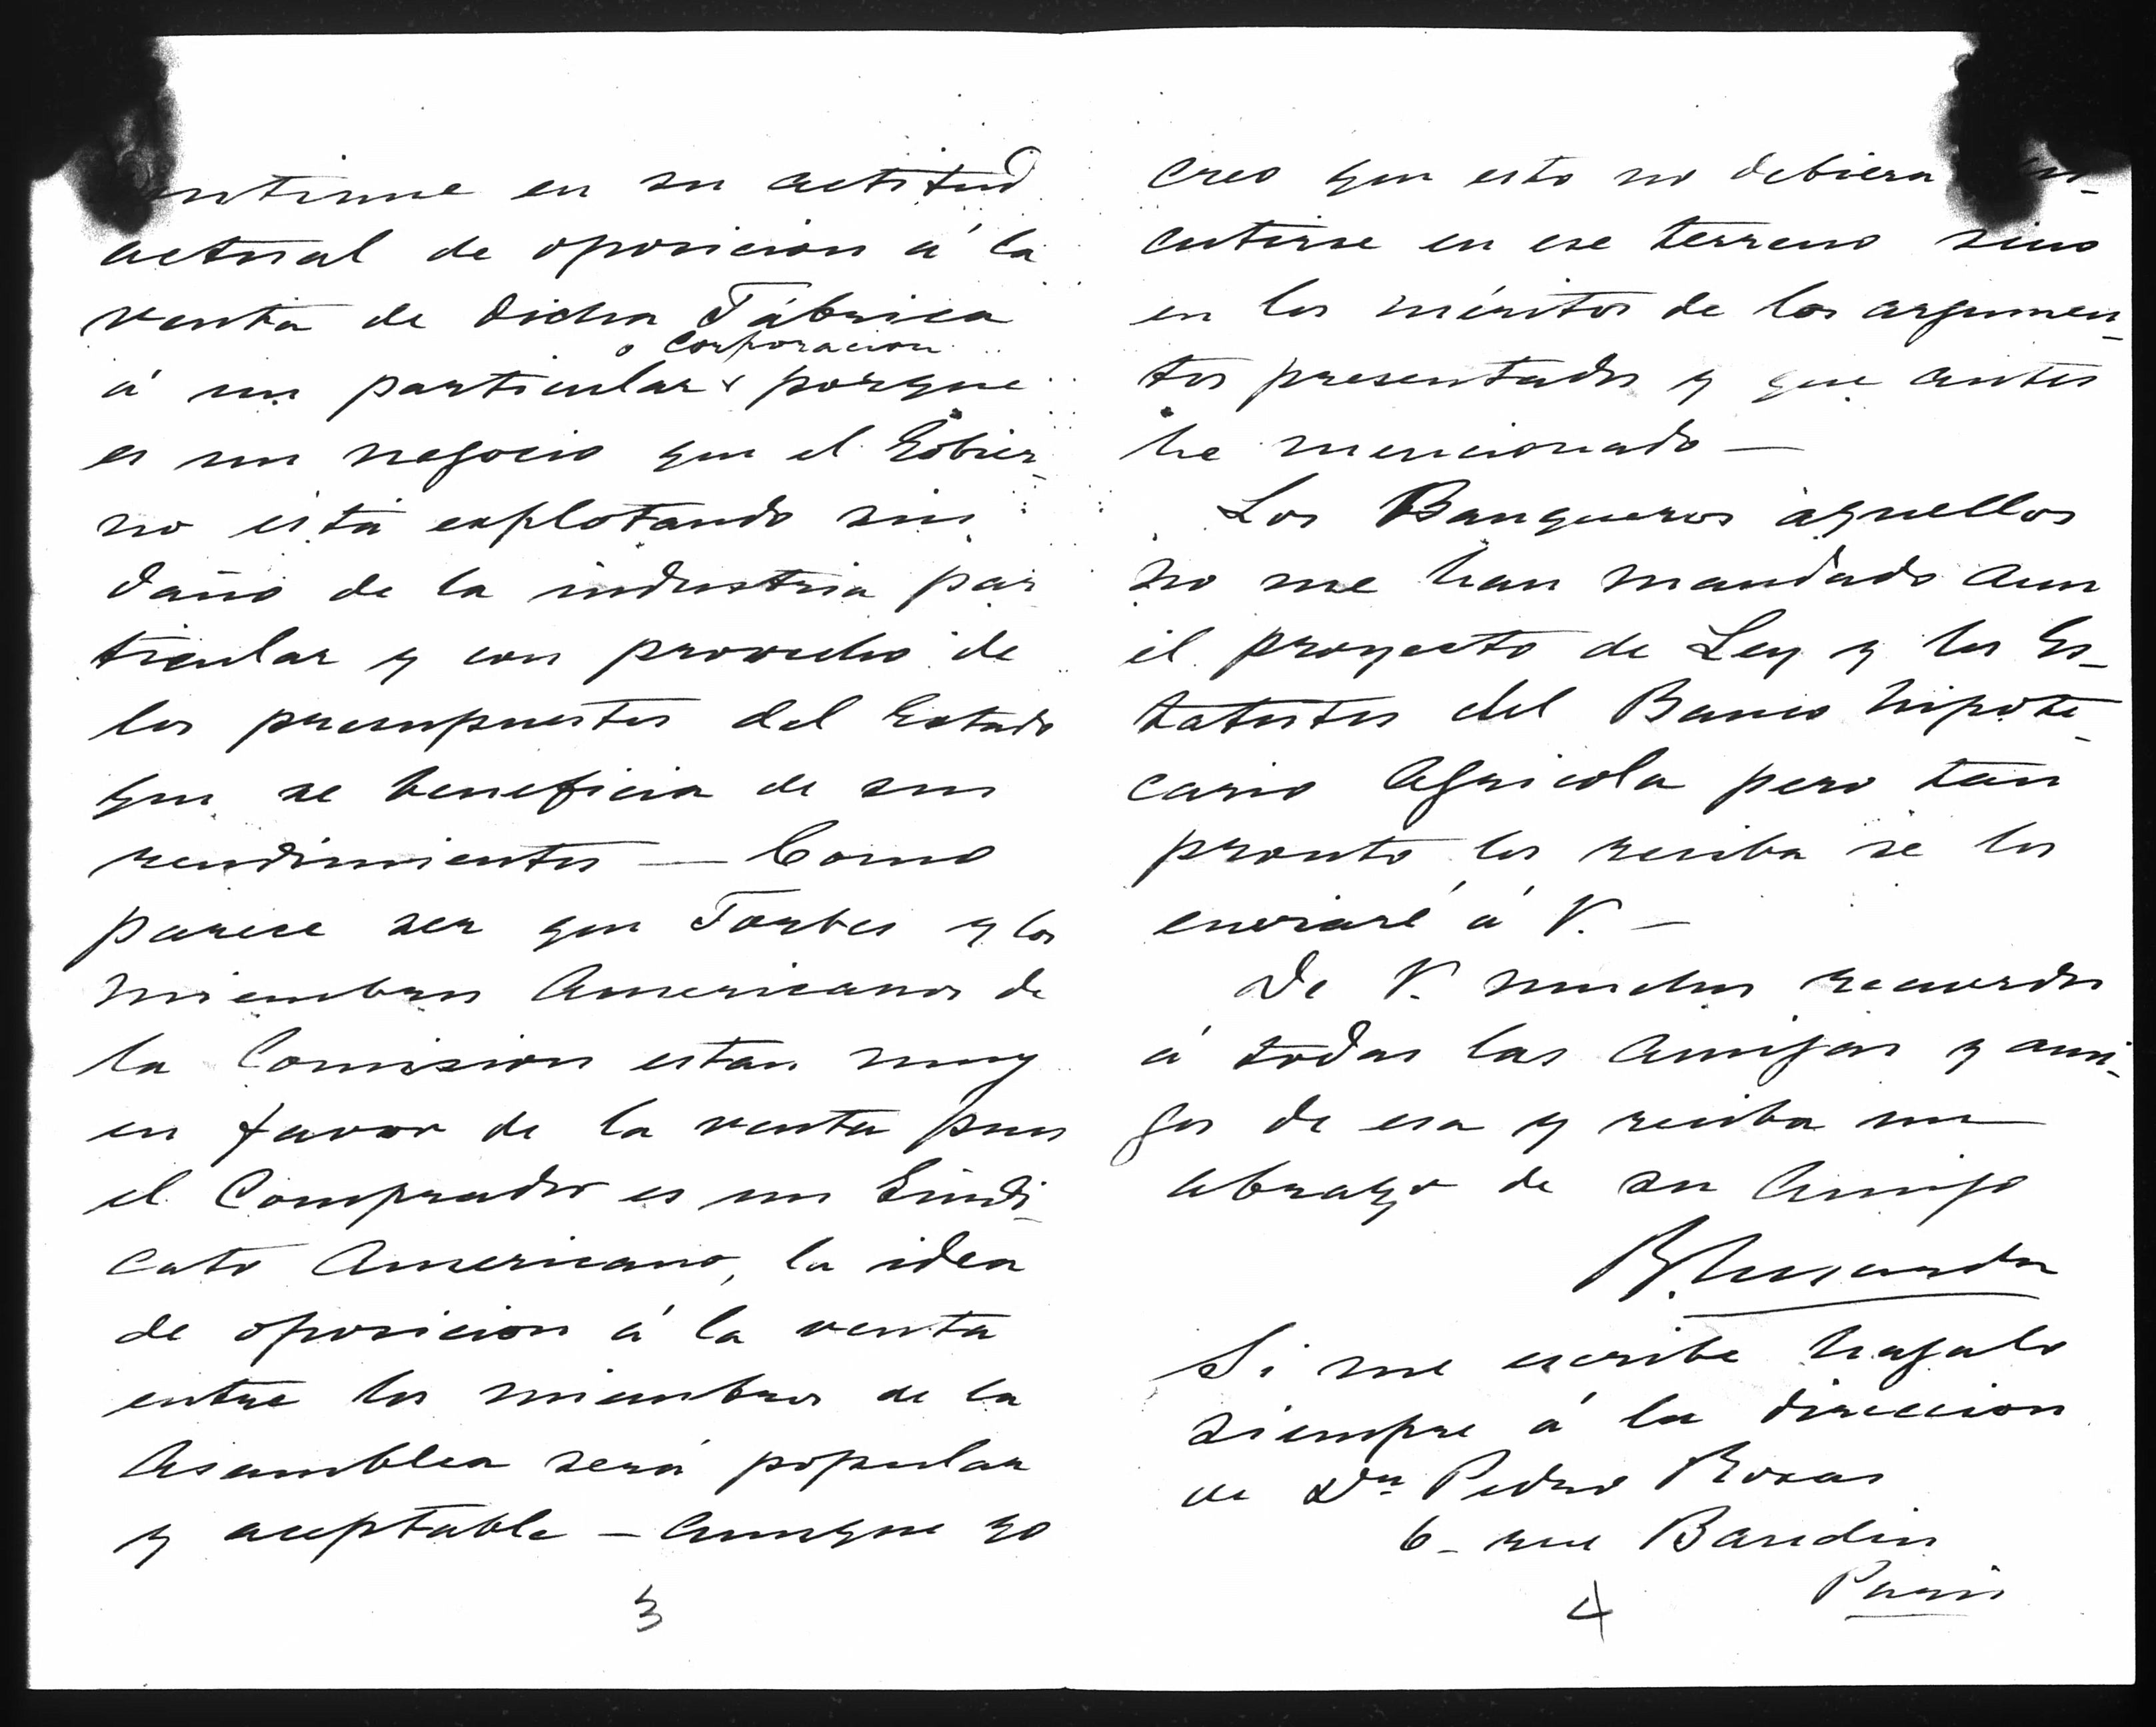 ntinue en su actitud
actual de oposicion á la
venta de dicha Fábrica
o Corporacion
á un particular porque
es un negocio que el Gobier-
no está explotando sin
daño de la industria par
ticular y con provecho de
los presupuestos del Estado
que se beneficia de sus
rendimientos — Como
parece ser que Forbes y los
miembros Americanos de
la Comision estan muy
en favor de la venta pues
el Comprador es un Sindi-
cato Americano, la idea
de oposicion á la venta
entre los miembros de la
Asamblea será popular
y aceptable — aunque yo
3
creo que esto no debiera
cutirse en ese terreno sino
en los méritos de los argumen-
tos presentados y que antes
he mencionado —
Los Banqueros aquellos
no me han mandado aun
el proyecto de Ley y los Es-
tatutos del Banco hipote-
cario Agricola pero tan
pronto los reciba se los
enviaré á V. —
De V. muchos recuerdos
á todas las amigas y ami-
gos de esa y reciba un
abrazo de su Amigo
Si me escribe hagalo
siempre á la direccion
de Dn Pedro Roxas
6 - rue Baudin
Paris
4